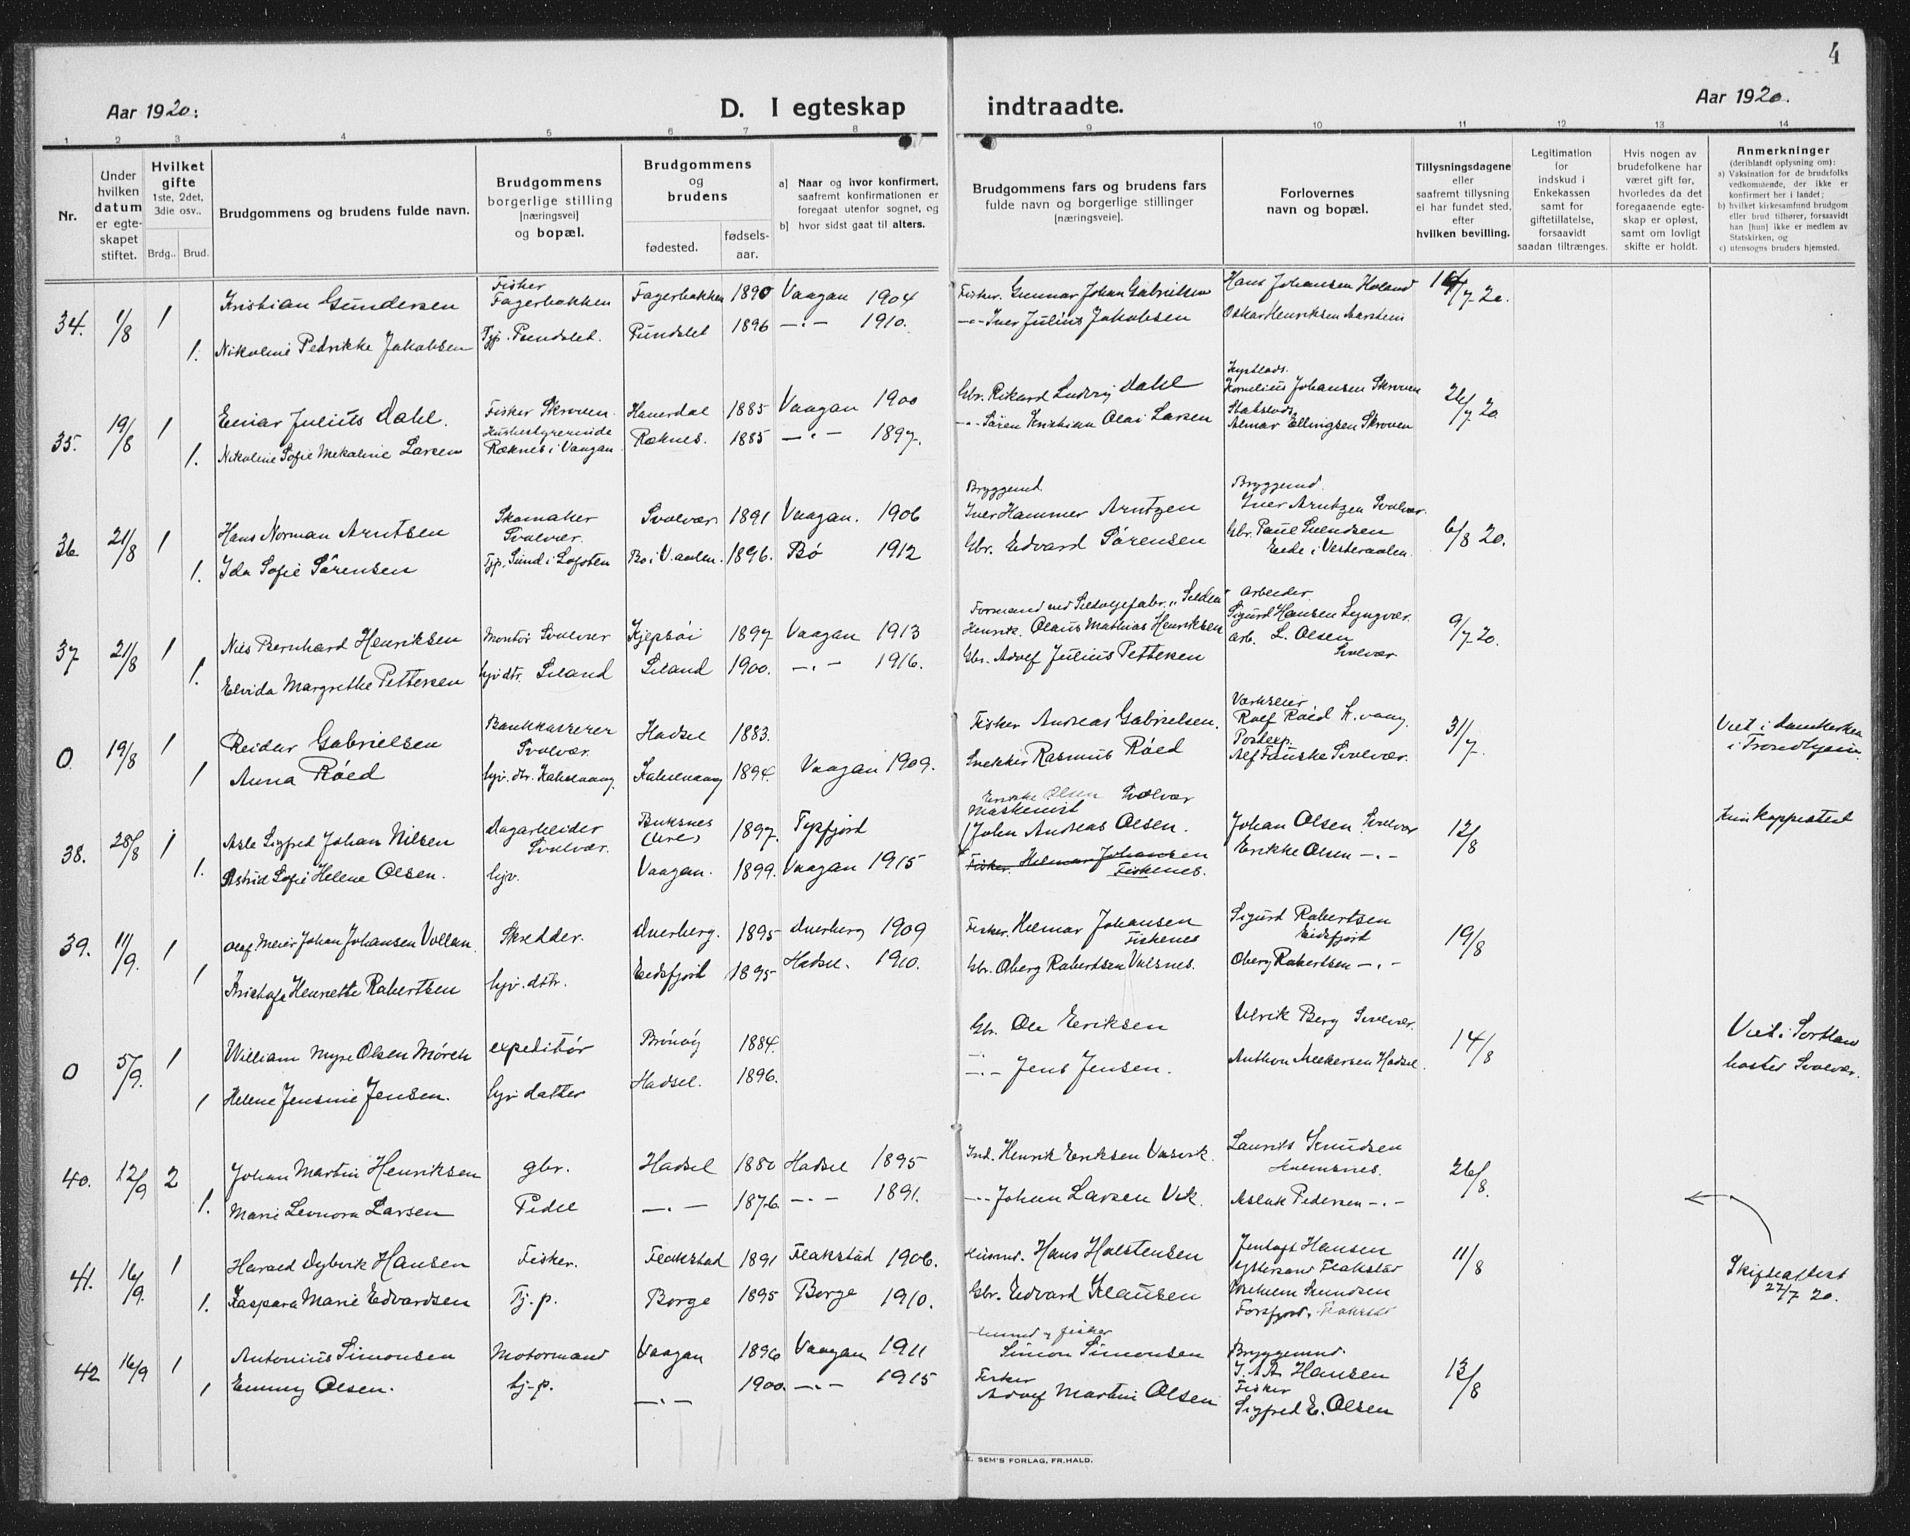 4
Aar 1920:
D. I egteskap indtraadte.
Aar 1920.
1 2 3 4 5 6 7 8 9 10 11 12 13 14
Nr.
Under hvilken datum er egteskapet stiftet.
Hvilket gifte 1ste, 2det, 3die osv..
Brdg.. Brud.
Brudgommens og brudens fulde navn.
Brudgommens borgerlige stilling [næringsvei] og bopæl.
Brudgommens og brudens
fødested. fødselsaar.
a] Naar og hvor konfirmert, saafremt konfirmationen er foregaat utenfor sognet, og
b] hvor sidst gaat til alters.
Brudgommens fars og brudens fars fulde navn og borgerlige stillinger [næringsveie].
Forlovernes navn og bopæl.
Tillysningsdagene eller saafremt tillysning ei har fundet sted, efter hvilken bevilling.
Legitimation for indskud i Enkekassen samt for giftetillatelse, forsaavidt saadan tiltrænges.
Hvis nogen av brudefolkene har været gift før, hvorledes da det foregaaende egteskap er opløst, samt om lovligt skifte er holdt.
Anmerkninger
(deriblandt oplysning om):
a) Vaksination for de brudefolks vedkommende, der ikke er konfirmert her i landet;
b) hvilket kirkesamfund brudgom eller brud tilhører, forsaavidt han [hun] ikke er medlem av Statskirken, og
c) utensogns bruders hjemsted.
34. 1/8 1 Kristian Gundersen Fisker Fagerbakken Fagerbakken 1890 Vaagan 1904 Fisker. Gunnar Johan Gabrielsen Hans Johansen Holand /7 20.
1. Nikoline Pedrikke Jakobsen Tjp. Pundslet. Pundslet 1896 -"- 1910. -"- Iver Julius Jakobsen Oskar Henriksen
35. 19/8 1 Einar Julius Dahl. Fisker Skroven. 1885 Vaagan 1900 Gbr. Rikard Ludvig Dahl Kornelius Johansen Skroven 26/7 20
1. Nikoline Sofie Mekaline Larsen Husbestyrerinde Røknes i Vaagan Røknes. 1885 -"- 1897. -"- Søren Kristian Olai Larsen Almar Ellingsen Skroven
36 21/8 1 Hans Norman Arntsen Skomaker Svolvær Svolvær 1891 Vaagan. 1906 Bryggemd Iver Hammer Arntzen Bryggemd. Iver Arntzen Svolvær 6/8 20.
1. Ida Sofie Sørensen Tjp. Sund i Lofoten Bø i V.aalen. 1896. Bø 1912 Gbr. Edvard Sørensen Gbr. Paul Svendsen Eide i Vesteraalen.
37 21/8 1 Nils Bernhard Henriksen Montør Svolvær Kjepsøi 1897 Vaagan 1913 Formand ved Sildoljefabr. Henrik. Olaus Mathias Henriksen Arbeider. Sigurd Hansen Lyngvær. 9/7 20.
1. Elvida Margrethe Pettersen hjv dtr. Siland Siland 1900. -"- 1916. Gbr. Adolf Julius Pettersen arb. L. Olsen Svolvær
0 19/8 1 Reidar Gabrielsen Bankkasserer Svolvær. Hadsel 1883. Fisker Andreas Gabrielsen. Værkseier Rolf Røed K.vaag. 31/7 Viet i domkirken i Trondhjem
1 Anna Røed hjv. dtr. Kabelvaag Kabelvaag 1894. Vaagan 1909. Snekker Rasmus Røed Postexp. Alf Fauske Svolvær.
38. 28/8 1 Asle Sigfred Johan Nilsen Dagarbeider Svolvær. Buksnes (Ure) 1897. Tysfjord Enrikke Olsen Svolvær Maskinist John Andreas Olsen. Johan Olsen Svolvær 12/8 Kun koppeattest
1. Astrid Sofie Helene Olsen. hjv. Vaagan. 1899. Vaagan 1915 Fisker. Helmar Johansen Fiskenes. Erikke Olsen -"-
39. 11/9. 1 Olaf Meier Johan Johansen Vollan. Skredder. Dverberg. 1895 Dverberg 1909 Fisker. Helmar Johansen Fiskenes Sigurd Robertsen Eidsfjord 19/8
1 Henrette Robertsen hjv. dtr. Eidsfjord 1895 Hadsel. 1910. Gbr. Oberg Robertsen Valsnes. Oberg Robertsen -"-
0 5/9. 1 William Myre Olsen Mörch expeditør Brönöy 1884. Gbr. Ole Eriksen Ulrik Berg Svolvær. 14/8 Viet i Sortland
1 Helene Jensine Jensen. hjv. datter Hadsel. 1896. -"- Jens Jensen. Anthon Hadsel. bosted Svolvær.
40. 12/9 2 Johan Martin Henriksen gbr. Hadsel 1880 Hadsel 1895 Ind. Henrik Eriksen Laurits Knudsen Holmsnes. 26/8.
1. Marie Leonora Larsen Pidle -"- 1876. -"- 1891. -"- Johan Larsen Vik. Aslak Pedersen -"-
41. 16/9. 1 Harald Dybvik Hansen Fisker. Flakstad 1891 Flakstad 1906. Husmd. Hans Holstensen Jentoft Hansen Flakstad 11/8 Skifteattest 22/7 20.
1. Kaspara Marie Edvardsen Tj.p. Borge 1895 Borge 1910. Gbr. Edvard Klausen Vilhelm Knudsen
42 16/9 1 Antonius Simonsen Motormand Vaagan 1896 Vaagan 1911 fisker Simon Simonsen Bryggemd. J. A. A. Hansen 13/8
1 Emmy Olsen. tj-p. -"- 1900. -"- 1915 Fisker Adolf Martin Olsen Fisker Sigfred E. Olsen
E. SEM'S FORLAG, FR.HALD.